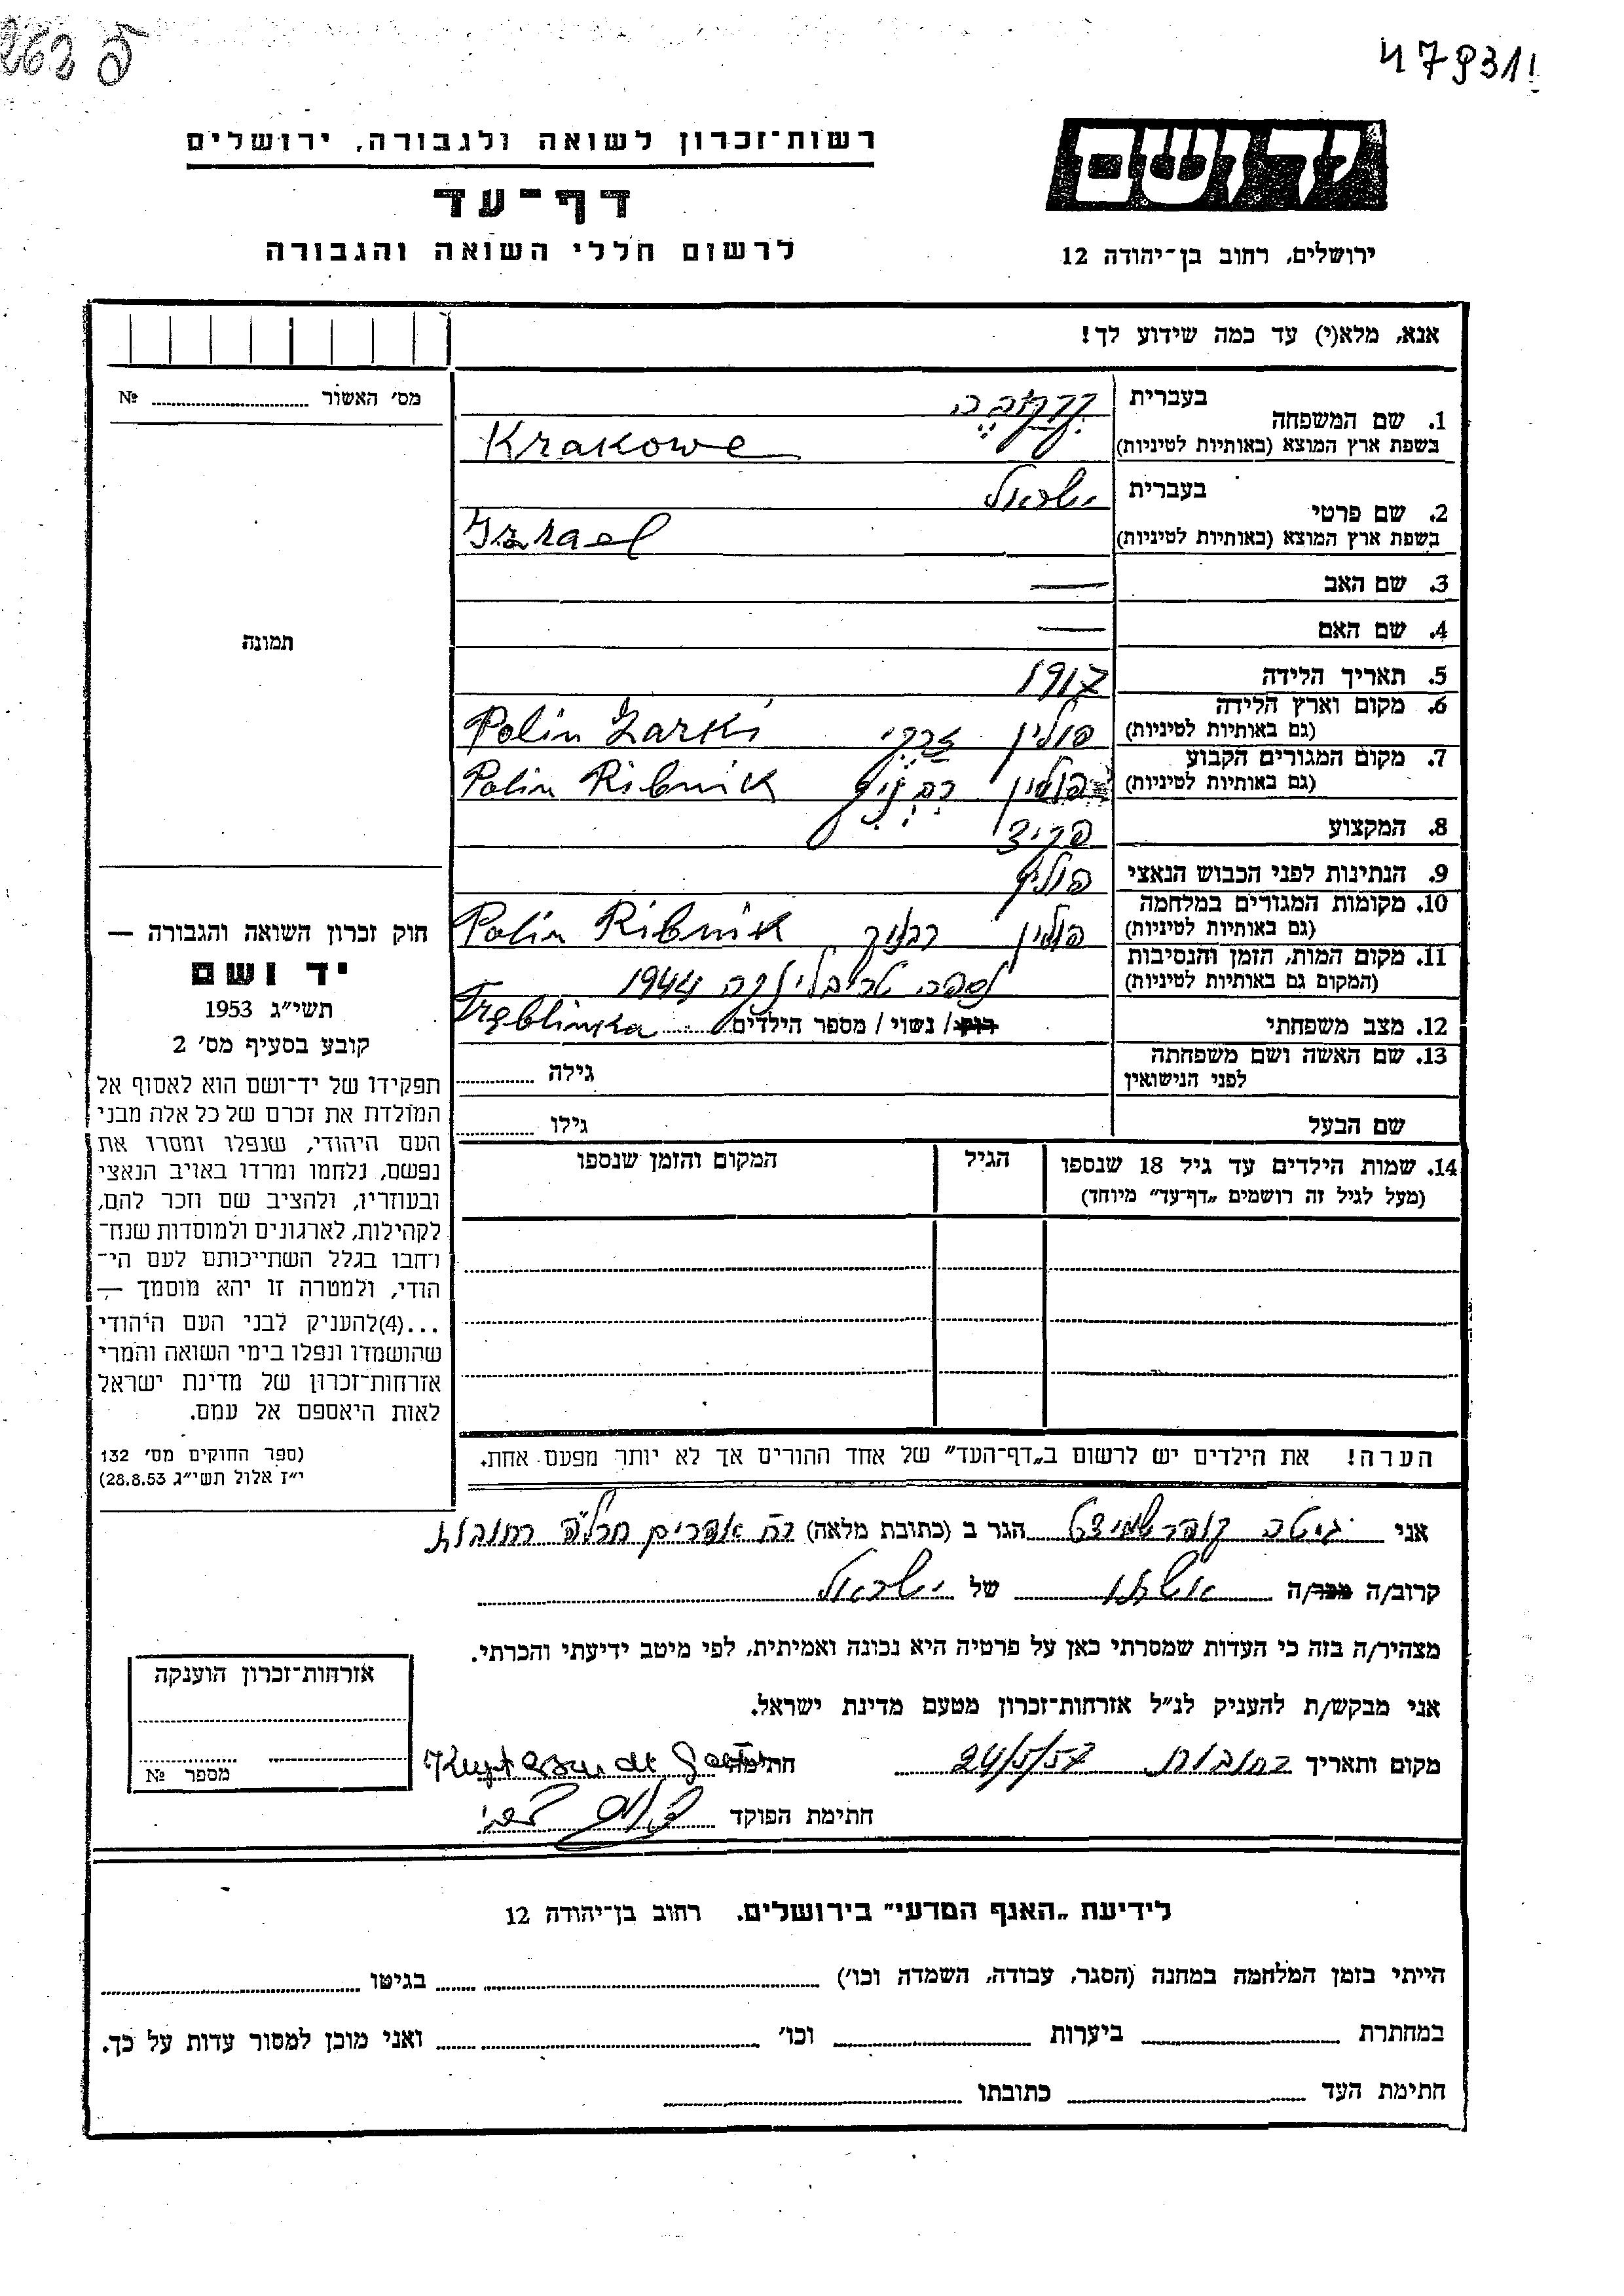 263 ק
479311
יד ושם
רשות־זכרון לשואה ולגבורה, ירושלים
דף־עד
לרשום חללי השואה והגבורה
ירושלים, רחוב בן־יהודה 12
אנא, מלא(י) עד כמה שידוע לך!
מס' האשור № ........
תמונה
1. שם המשפחה בעברית
בשפת ארץ המוצא (באותיות לטיניות) Krakowe
2. שם פרטי בעברית ישראל
בשפת ארץ המוצא (באותיות לטיניות) Izrael
3. שם האב —
4. שם האם —
5. תאריך הלידה 1917
6. מקום וארץ הלידה פולין זרקי Polin Zarki
(גם באותיות לטיניות)
7. מקום המגורים הקבוע פולין ריבניק Polin Ribnik
(גם באותיות לטיניות)
8. המקצוע
9. הנתינות לפני הכבוש הנאצי פולין
10. מקומות המגורים במלחמה פולין רבניק Polin Ribnik
(גם באותיות לטיניות)
11. מקום המות, הזמן והנסיבות נספה טריבלינקה 1944
(המקום גם באותיות לטיניות) Treblinska
12. מצב משפחתי רוק / נשוי / מספר הילדים ........
13. שם האשה ושם משפחתה גילה ........
לפני הנישואין
שם הבעל גילו ........
14. שמות הילדים עד גיל 18 שנספו הגיל המקום והזמן שנספו
(מעל לגיל זה רושמים „דף־עד" מיוחד)
הערה! את הילדים יש לרשום ב„דף־העד" של אחד ההורים אך לא יותר מפעם אחת.
חוק זכרון השואה והגבורה —
יד ושם
תשי"ג 1953
קובע בסעיף מס' 2
תפקידו של יד־ושם הוא לאסוף אל
המולדת את זכרם של כל אלה מבני
העם היהודי, שנפלו ומסרו את
נפשם, נלחמו ומרדו באויב הנאצי
ובעוזריו, ולהציב שם וזכר להם,
לקהילות, לארגונים ולמוסדות שנח־
רחבו בגלל השתייכותם לעם הי־
הודי, ולמטרה זו יהא מוסמך —
...(4)להעניק לבני העם היהודי
שהושמדו ונפלו בימי השואה והמרי
אזרחות־זכרון של מדינת ישראל
לאות היאספם אל עמם.
(ספר החוקים מס' 132
י"ז אלול תשי"ג 28.8.53)
אני גיטה קופרשמידט הגר ב (כתובת מלאה) רח אפרים רחובות
קרוב/ה מכר/ה של ישראל
מצהיר/ה בזה כי העדות שמסרתי כאן על פרטיה היא נכונה ואמיתית, לפי מיטב ידיעתי והכרתי.
אני מבקש/ת להעניק לנ"ל אזרחות־זכרון מטעם מדינת ישראל.
מקום ותאריך רחובות 24/5/57 חתימה
חתימת הפוקד
אזרחות־זכרון הוענקה
מספר №
לידיעת „האגף המדעי" בירושלים. רחוב בן־יהודה 12
הייתי בזמן המלחמה במחנה (הסגר, עבודה, השמדה וכו') ........ בגיטו ........
במחתרת ........ ביערות ........ וכו' ........ ואני מוכן למסור עדות על כך.
חתימת העד ........ כתובתו ........